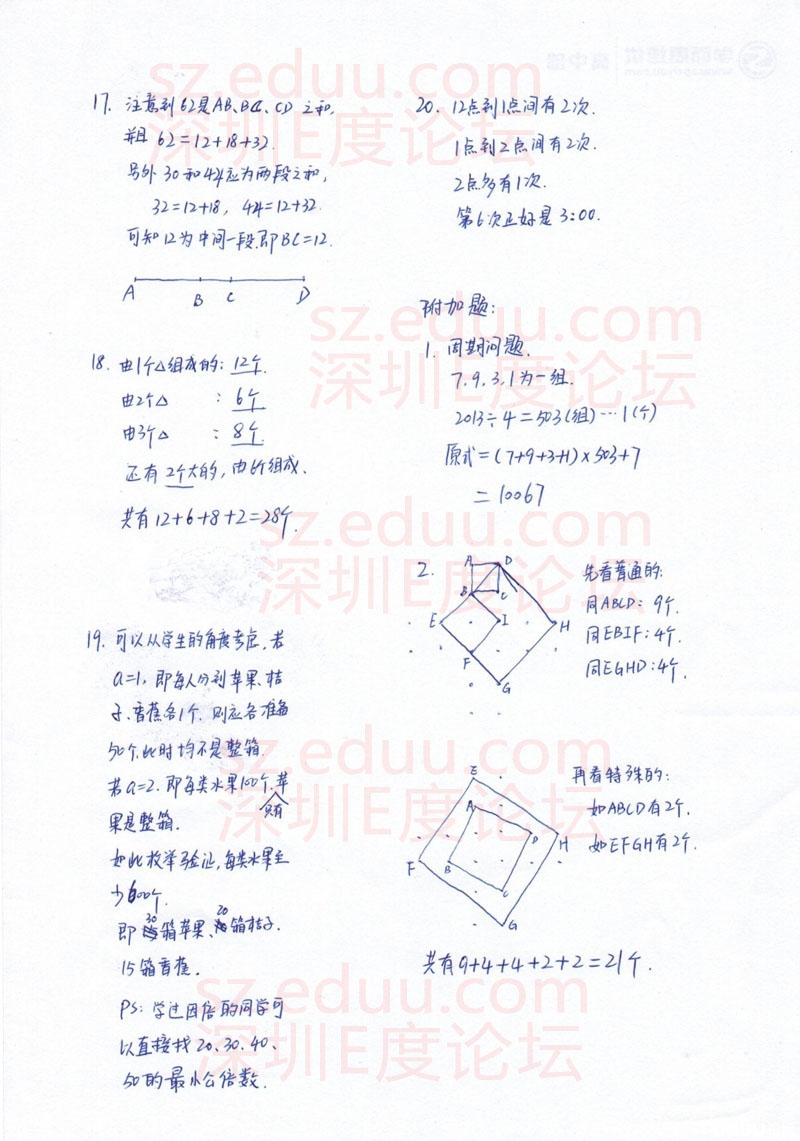 17. 注意到62是AB、BC、CD之和,
并且 62=12+18+32.
另外30和44应为两段之和,
32=12+18, 44=12+32.
可知12为中间一段.即BC=12.
A B C D
18. 由1个△组成的: 12个.
由2个△ : 6个
由3个△ : 8个.
还有2个大的, 由6个组成.
共有12+6+8+2=28个.
19. 可以从学生的角度考虑, 若
a=1, 即每人分到苹果、桔
子、香蕉各1个. 则应各准备
50个,此时均不是整箱.
若a=2. 即每类水果100个, 苹
只有
果是整箱.
如此枚举验证,每类水果至
少600个.
即30箱苹果、20箱桔子.
15箱香蕉.
PS: 学过因倍的同学可
以直接找20、30、40、
50的最小公倍数.
20. 12点到1点间有2次.
1点到2点间有2次.
2点多有1次.
第6次正好是3:00.
附加题:
1. 周期问题.
7、9、3、1为一组.
2013÷4=503(组)…1(个)
原式=(7+9+3+1)×503+7
=10067
2.
A D
B C
E I H
F
G
先看普通的:
同ABCD: 9个.
同EBIF: 4个.
同EGHD: 4个.
E
A
D
H
F B
C
G
再看特殊的:
如ABCD有2个.
如EFGH有2个.
共有9+4+4+2+2=21个.
sz.eduu.com
深圳E度论坛
sz.eduu.com
深圳E度论坛
sz.eduu.com
深圳E度论坛
sz.eduu.com
深圳E度论坛
sz.eduu.com
深圳E度论坛